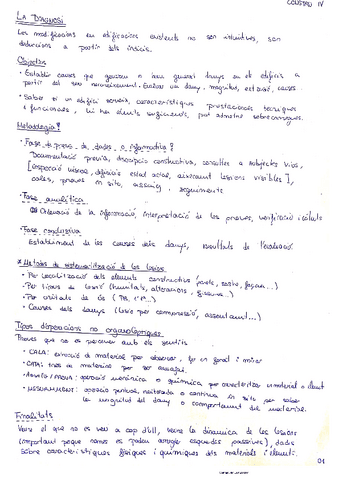 CONSTRU IV
LA DIAGNOSI
Les modificacions en edificacions existents no són intuitives, són
deduccions a partir dels indicis.
Objectius
- Establir causes que generen o han generat danys en el edifici a
partir del seu reconeixement. Evaluar un dany, magnitud, estació, causes.
- Saber si un edifici, característiques prestacions tècniques
i funcionals, suficients, per admetre sobrecàrregues.
Metodologia?
· Fase de presa de dades o informativa?
Documentació prèvia, descripció constructiva, consultes a subjectes vius,
[inspecció visual, estat actual, aixecament lesions visibles],
cales, proves in situ, assaig, seguiments
· Fase analítica
Ordenació de la informació, interpretació de les proves, verificació i càlculs
· Fase conclusiva
Establiment de les causes dels danys, resultats de l'avaluació.
* Mètodes de sistematització de les lesions
· Per localització dels elements constructius (parets, sostre, façana...)
· Per tipus de lesió (humitats, alteracions, fissures...)
· Per unitats de ús (PB, 1ª...)
· Causes dels danys (lesió per compressió, assentament...)
Tipus d'operacions no organolèptiques
Proves que no es perceben amb els sentits
· CALA: extracció de material per observar, fer un forat i mirar
· CATA: tros de material per ser assajat.
· ASSAIG/PROVA: operació mecànica o química per caracteritzar un material o element
· operació puntual, reiterada o contínua in situ per saber
la magnitud del dany o comportament del material.
Finalitats
Veure el que no es veu a cop d'ull, sobre la dinàmica de les lesions
(important perquè només es poden arreglar esquerdes passives), dades
sobre característiques físiques i químiques dels materials i element.
01